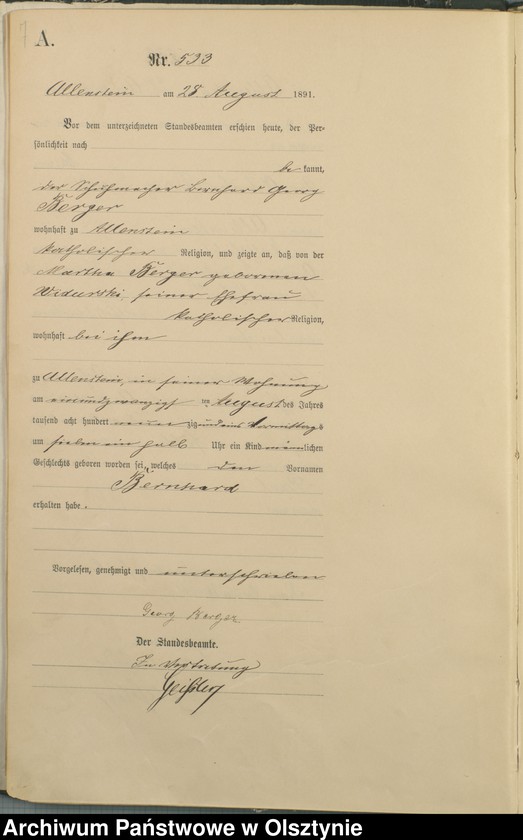 A.
Nr. 533
Allenstein am 28 August 1891.
Vor dem unterzeichneten Standesbeamten erschien heute, der Per-
sönlichkeit nach
be kannt,
der Schuhmacher Bernhard Georg
Berger
wohnhaft zu Allenstein
katholischer Religion, und zeigte an, daß von der
Martha Berger geborenen
seiner Ehefrau
katholischer Religion,
wohnhaft bei ihm
zu Allenstein, in seiner Wohnung
am einundzwanzigsten August des Jahres
tausend acht hundert neunzig und eins Vormittags
um sieben ein halb Uhr ein Kind männlichen
Geschlechts geboren worden sei, welches den Vornamen
Bernhard
erhalten habe.
Vorgelesen, genehmigt und unterschrieben
Georg Berger
Der Standesbeamte.
In Vertretung
Archiwum Państwowe w Olsztynie